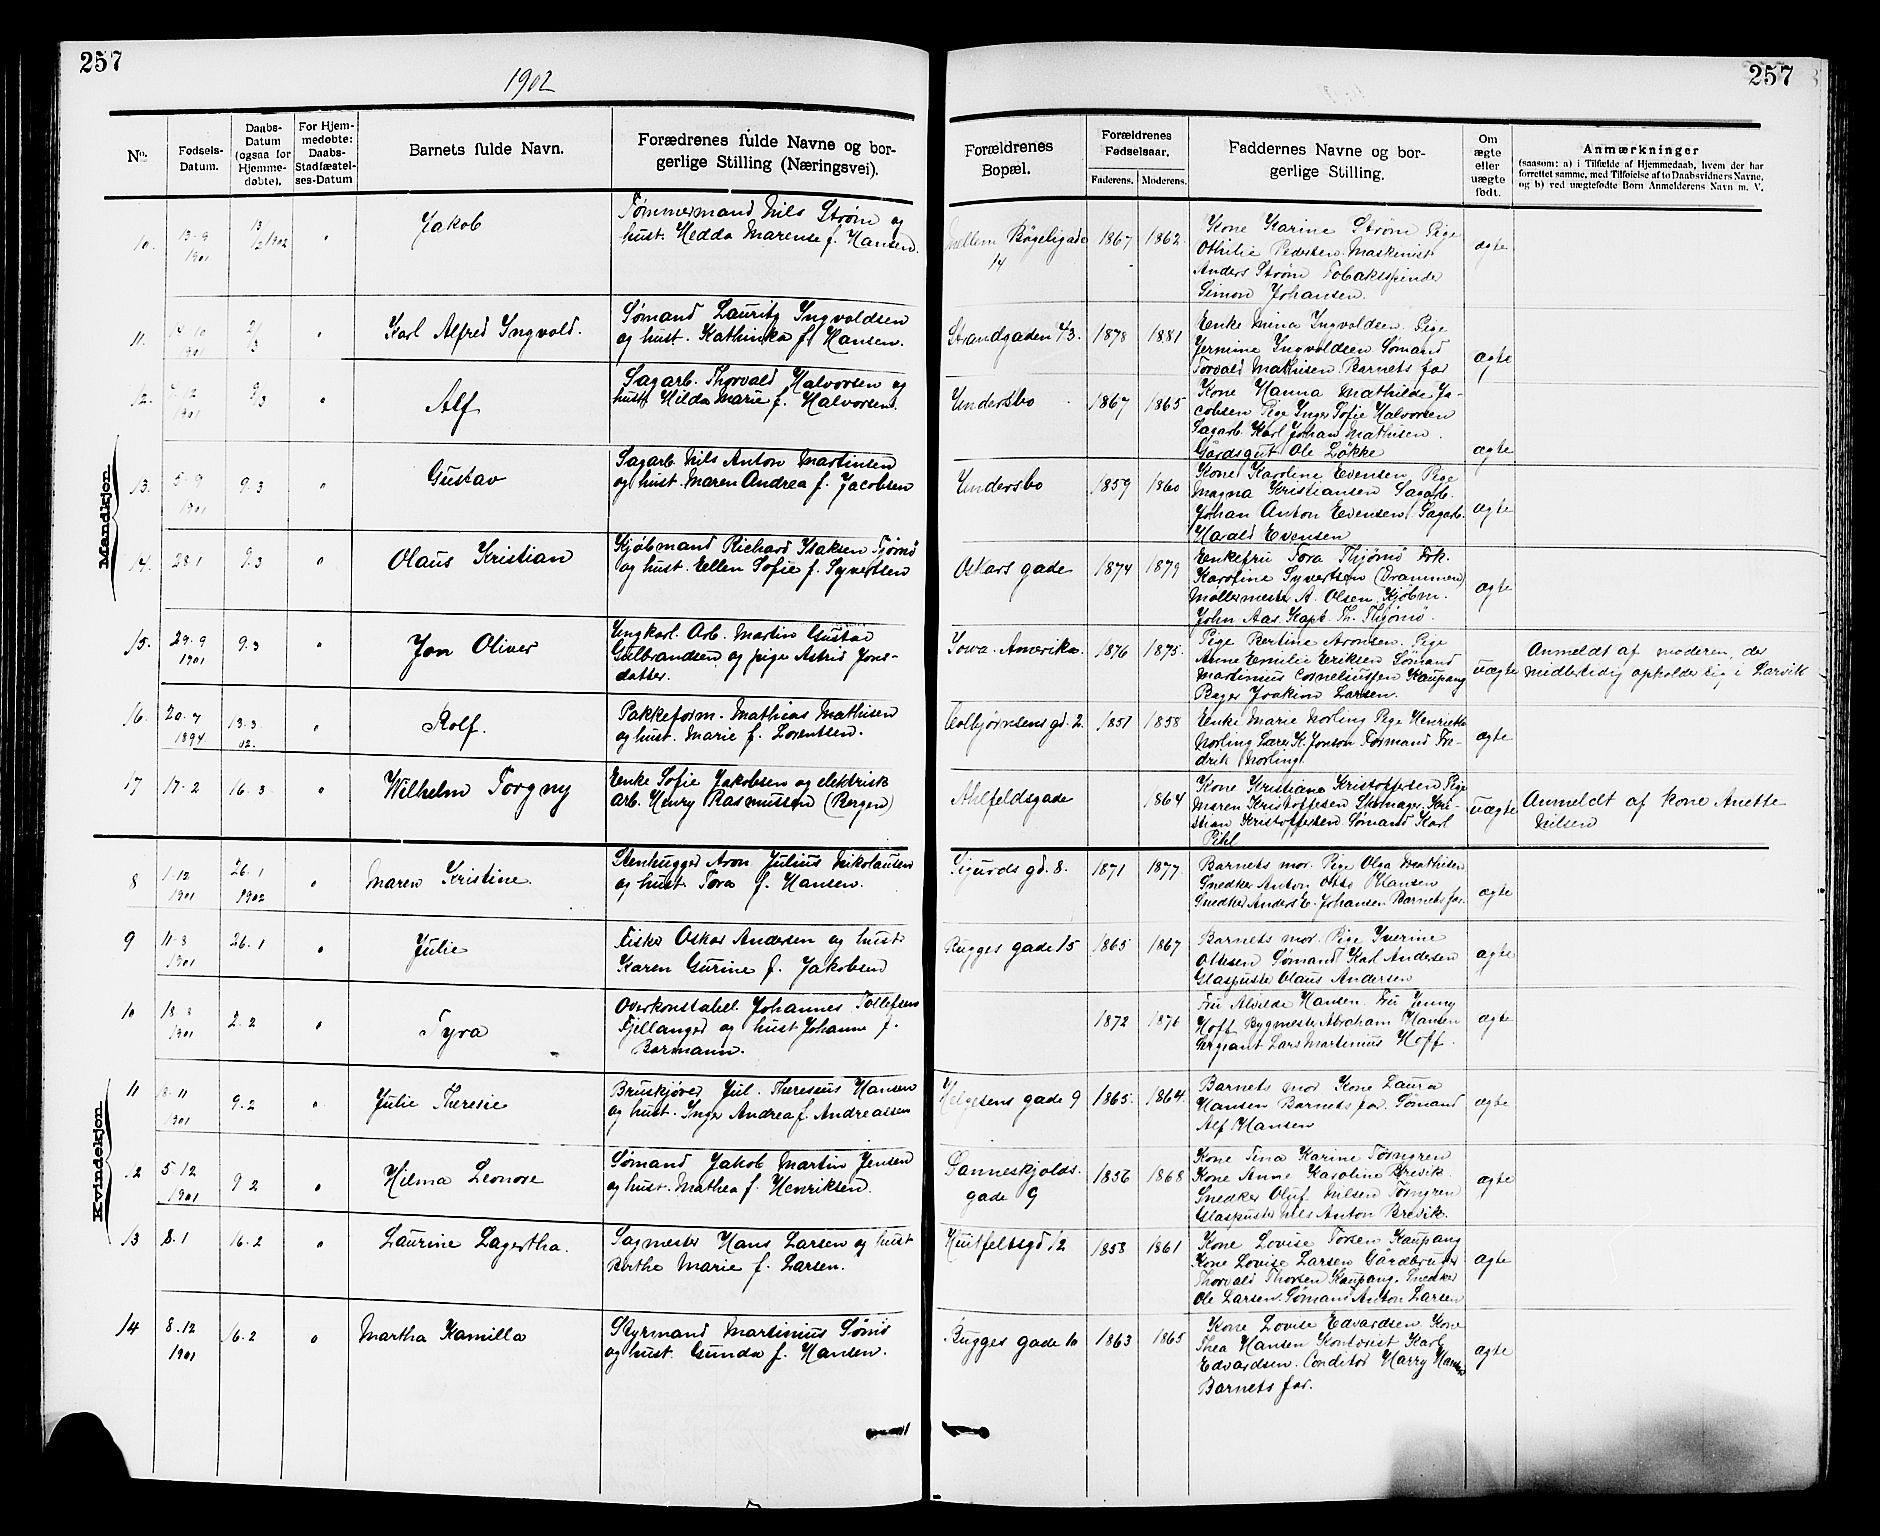 257
257
1902
No.
Fødsels-
Datum.
Daabs-
Datum
(ogsaa for
Hjemme-
døbte).
For Hjem-
medøbte:
Daabs-
Stadfæstel-
ses-Datum
Barnets fulde Navn.
Forædrenes fulde Navne og bor-
gerlige Stilling (Næringsvei).
Forældrenes
Bopæl.
Forældrenes
Fødselsaar.
Faderens. Moderens.
Faddernes Navne og bor-
gerlige Stilling.
Om
ægte
eller
uægte
født.
Anmærkninger
(saasom: a) i Tilfælde af Hjemmedaab, hvem der har
forrettet samme, med Tilføielse af to Daabsvidners Navne,
og b) ved uægtefødte Børn Anmelderens Navn m. V.
Mandkjøn
10. 13-9 1901 13/2 1902 " Jakob
Tømmermand Nils Strøm og
hust. Hedda Marense f. Hansen.
Mellem Bøgeligade 14 1867 1862
Kone Karine Strøm Pige
Othilie Pedersen Maskinist
Anders Strøm Tobakspinder
Simon Johansen.
ægte
11. 14-10 1901 2/3 " Karl Alfred Ingvold.
Sømand Lauritz Ingvoldsen
og hust. Kathinka f. Hansen.
Strandgaden 43. 1878 1881
Enke Mina Ingvoldsen. Pige
Jermine Ingvoldsen Sømand
Torvald Mathisen Barnets far
ægte
12. 12 1901 9/3 " Alf
Sagarb. Thorvald Halvorsen og
hust Hilda Marie f. Halvorsen.
Undersbo 1867 1865
Kone Hanna Mathilde Ja-
cobsen Pige Inger Sofie Halvorsen
Sagarb. Karl Johan Mathisen.
Gårdsgut Ole Løkke
ægte
13. 5-9 1901 9.3 " Gustav
Sagarb. Nils Anton Martinsen
og hust. Maren Andrea f. Jacobsen
Undersbo 1859 1860
Kone Karoline Evensen. Pige
Magna Kristiansen Sagarb.
Johan Anton Evensen. Sagarb.
Harald Evensen
ægte
14. 28.1 9.3 " Olaus Kristian
Kjøbmand Richard Isaksen Tjømø
og hust. Ellen Sofie f. Syvertsen
Oskars gade 1874 1879
Enkefru Tora Thjømø Frk.
Karoline Syvertsen (Drammen)
Møllermester A. Olsen. Kjøbm.
John Aas Kapt. Th. Thjømø.
ægte
15. 29.9 1901 9.3 " Jon Oliver
Ungkarl. Arb. Martin Gustav
Gulbrandsen og pige Astrid Jons-
datter.
Iowa. Amerika. 1876 1875.
Pige Bertine Aronsen. Pige
Anne Emilie Eriksen Sømand
Martinius Cornelius Kaupang
Bager Joakim Larsen.
uægte
Anmeldt af moderen, der
midlertidig opholder sig i Larvik
16. 20.7 1894 13.3 02. " Rolf.
Pakkeform. Mathias Mathisen
og hust. Marie f. Lorentsen.
Colbjørnsens gd. 2. 1851 1858
Enke Marie Norling Pige Henriette
Norling Lærer K. Jonson Formand Fre-
drik Norling
ægte
17 17-2 16.3 " Wilhelm Torgny
Enke Sofie Jakobsen og elektrisk
arb. Henry Rasmussen (Bergen)
Ahlfeldsgade 1864
Kone Kristiane Kristoffersen Pige
Maren Kristoffersen Skomager Kri-
stian Kristoffersen Sømand Karl
Pihl
uægte
Anmeldt af kone Anette
Nilsen
Kvindekjøn
8 1-12 1901 26.1 1902 " Maren Kristine.
Stenhugger Aron Julius Nikolausen
og hust. Tora f. Hansen.
Sigurds gd. 8. 1871 1877
Barnets mor. Pige Olga Mathisen
Snedker Anton Otto Hansen
Snedker Anders E. Johansen Barnets far.
ægte
9 11-8 1901 26.1 " Julie
Fisker Oskar Andersen og hust.
Karen Gurine f. Jakobsen
Bugges gade 15 1865 1867
Barnets mor. Pige Iverine
Ottesen Sømand Karl Andersen
Glaspuster Olaus Andersen
ægte
10 18 1901 2.2 " Tyra
Overkonstabel. Johannes Tollefsen
Fjellanger og hust Johanne f.
Bormann.
1872 1876
Fru Alvilde Hansen Fru Jenny
Hoff. Bygmester Abraham Hansen
Sergeant Lars Martinius Hoff.
ægte
11 11 1901 9.2 " Julie Theresie
Bruskjører Jul. Theresius Hansen
og hust. Inger Andrea f. Andreassen
Helgesens gade 9 1865. 1864
Barnets mor Kone Laura
Hansen Barnets far. Sømand
Alf Hansen
ægte
12 5.12 1901 9.2 " Hilma Leonore
Sømand Jakob Martin Jensen
og hust. Mathea f. Henriksen.
Danneskjolds.
gade 9 1856 1868
Kone Tina Karine Tørngren
Kone Anne Karoline Brevik.
Snedker Oluf Nilsen Tørngren
Glaspuster Nils Anton Brevik.
ægte
13 8.1 16.2 " Laurine Lagertha.
Sagmester Hans Larsen og hust
Berthe Marie f. Larsen.
Huitfeltsgd 12 1858 1861
Kone Lovise Torsen Kaupang
Kone Lovise Larsen Gårdbruker
Thorvald Thorsen Kaupang. Snedker
Ole Larsen. Sømand Anton Larsen
ægte
14 8.12 1901 16.2 " Martha Kamilla
Styrmand Martinius Sømo
og hust. Gunda f. Hansen.
Bugges gade 1863 1865
Kone Lovise Edvardsen Kone
Thea Hansen Kontorist Karl
Edvardsen. Conditor Harry Hansen
Barnets far.
ægte